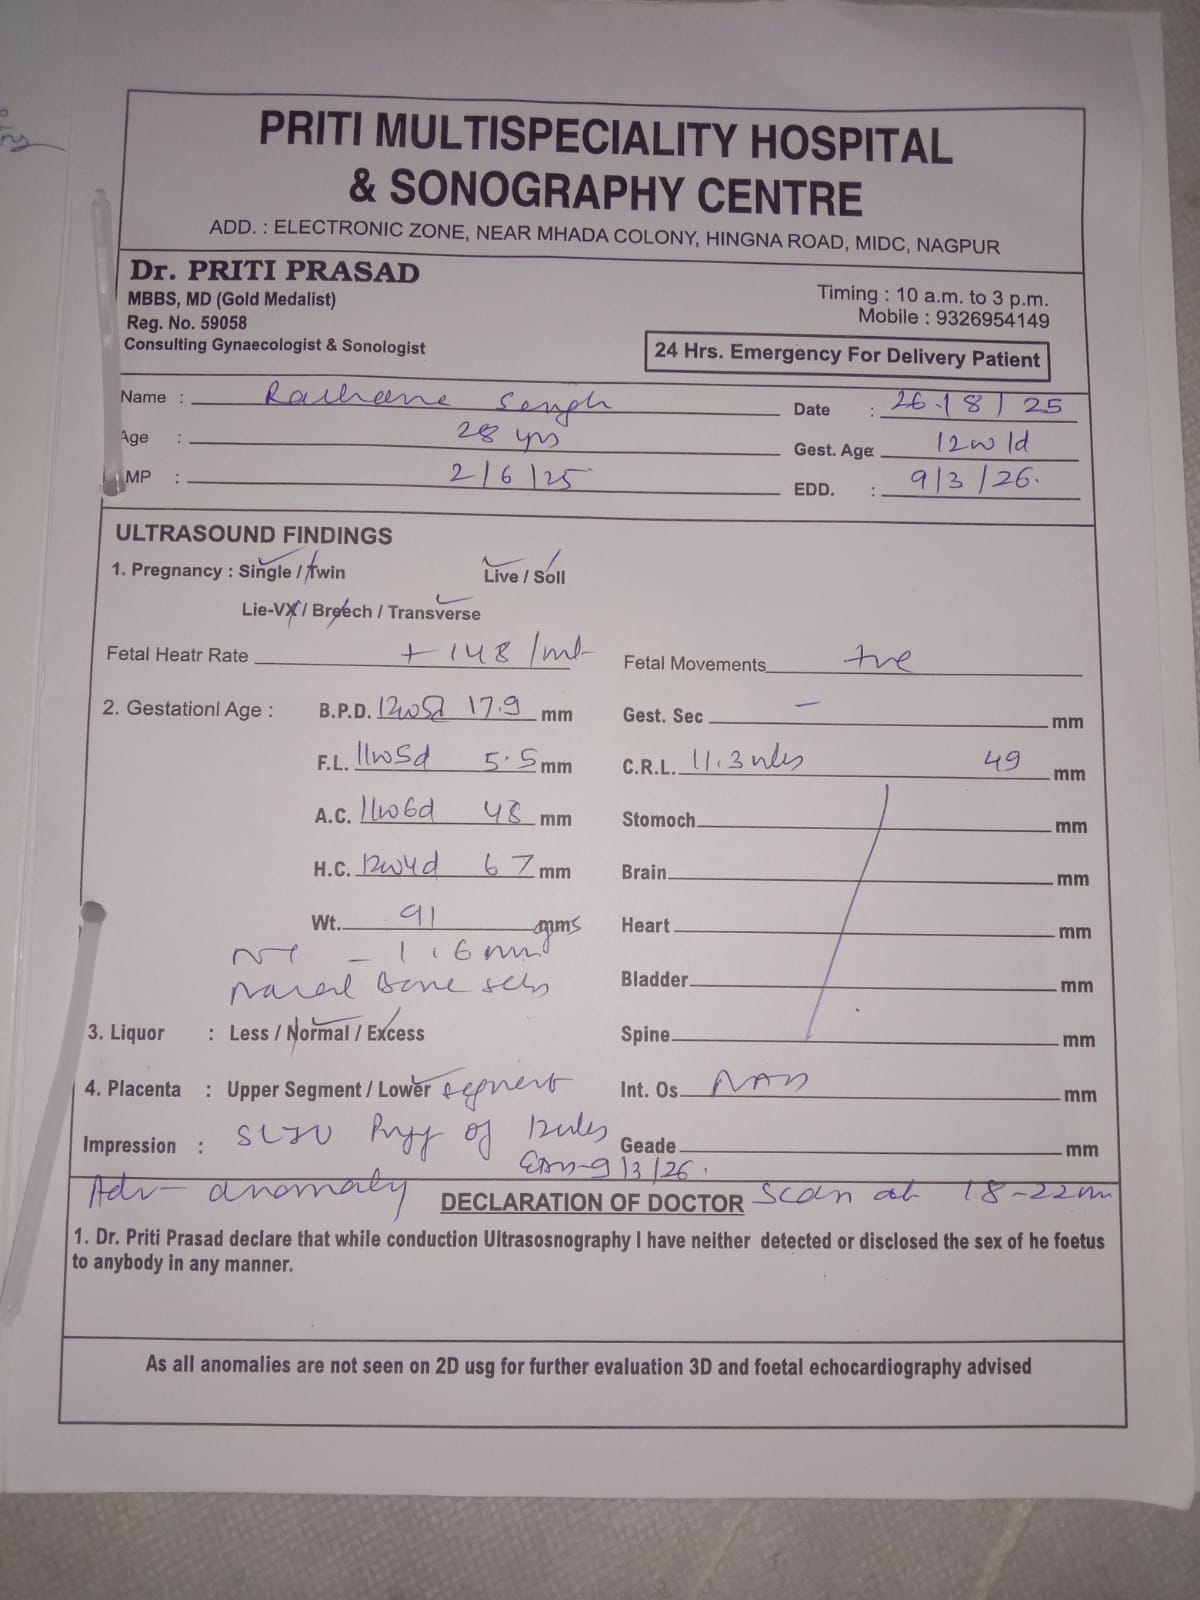 PRITI MULTISPECIALITY HOSPITAL
& SONOGRAPHY CENTRE
ADD. : ELECTRONIC ZONE, NEAR MHADA COLONY, HINGNA ROAD, MIDC, NAGPUR
Dr. PRITI PRASAD
MBBS, MD (Gold Medalist)
Reg. No. 59058
Consulting Gynaecologist & Sonologist
Timing : 10 a.m. to 3 p.m.
Mobile : 9326954149
24 Hrs. Emergency For Delivery Patient
Name :
Date : 26/8/25
Age : 28 yrs
Gest. Age 12w 1d
MP : 2/6/25
EDD. : 9/3/26.
ULTRASOUND FINDINGS
1. Pregnancy : Single / Twin Live / Soll
Lie-VX / Breech / Transverse
Fetal Heatr Rate + 148 /mt Fetal Movements +ve
2. Gestationl Age : B.P.D. 17.9 mm Gest. Sec - mm
F.L. 11w5d 5.5 mm C.R.L. 11.3 wks 49 mm
A.C. 11w6d 48 mm Stomoch mm
H.C. 12w4d 67 mm Brain mm
Wt. 91 gms Heart mm
NT - 1.6 mm
Nasal Bone seen Bladder mm
3. Liquor : Less / Normal / Excess Spine mm
4. Placenta : Upper Segment / Lower segment Int. Os. NAD mm
Impression : SLIU Preg of 12wks Geade mm
EDD-9/3/26.
Adv- anomaly scan at 18-22w
DECLARATION OF DOCTOR
1. Dr. Priti Prasad declare that while conduction Ultrasosnography I have neither detected or disclosed the sex of he foetus
to anybody in any manner.
As all anomalies are not seen on 2D usg for further evaluation 3D and foetal echocardiography advised